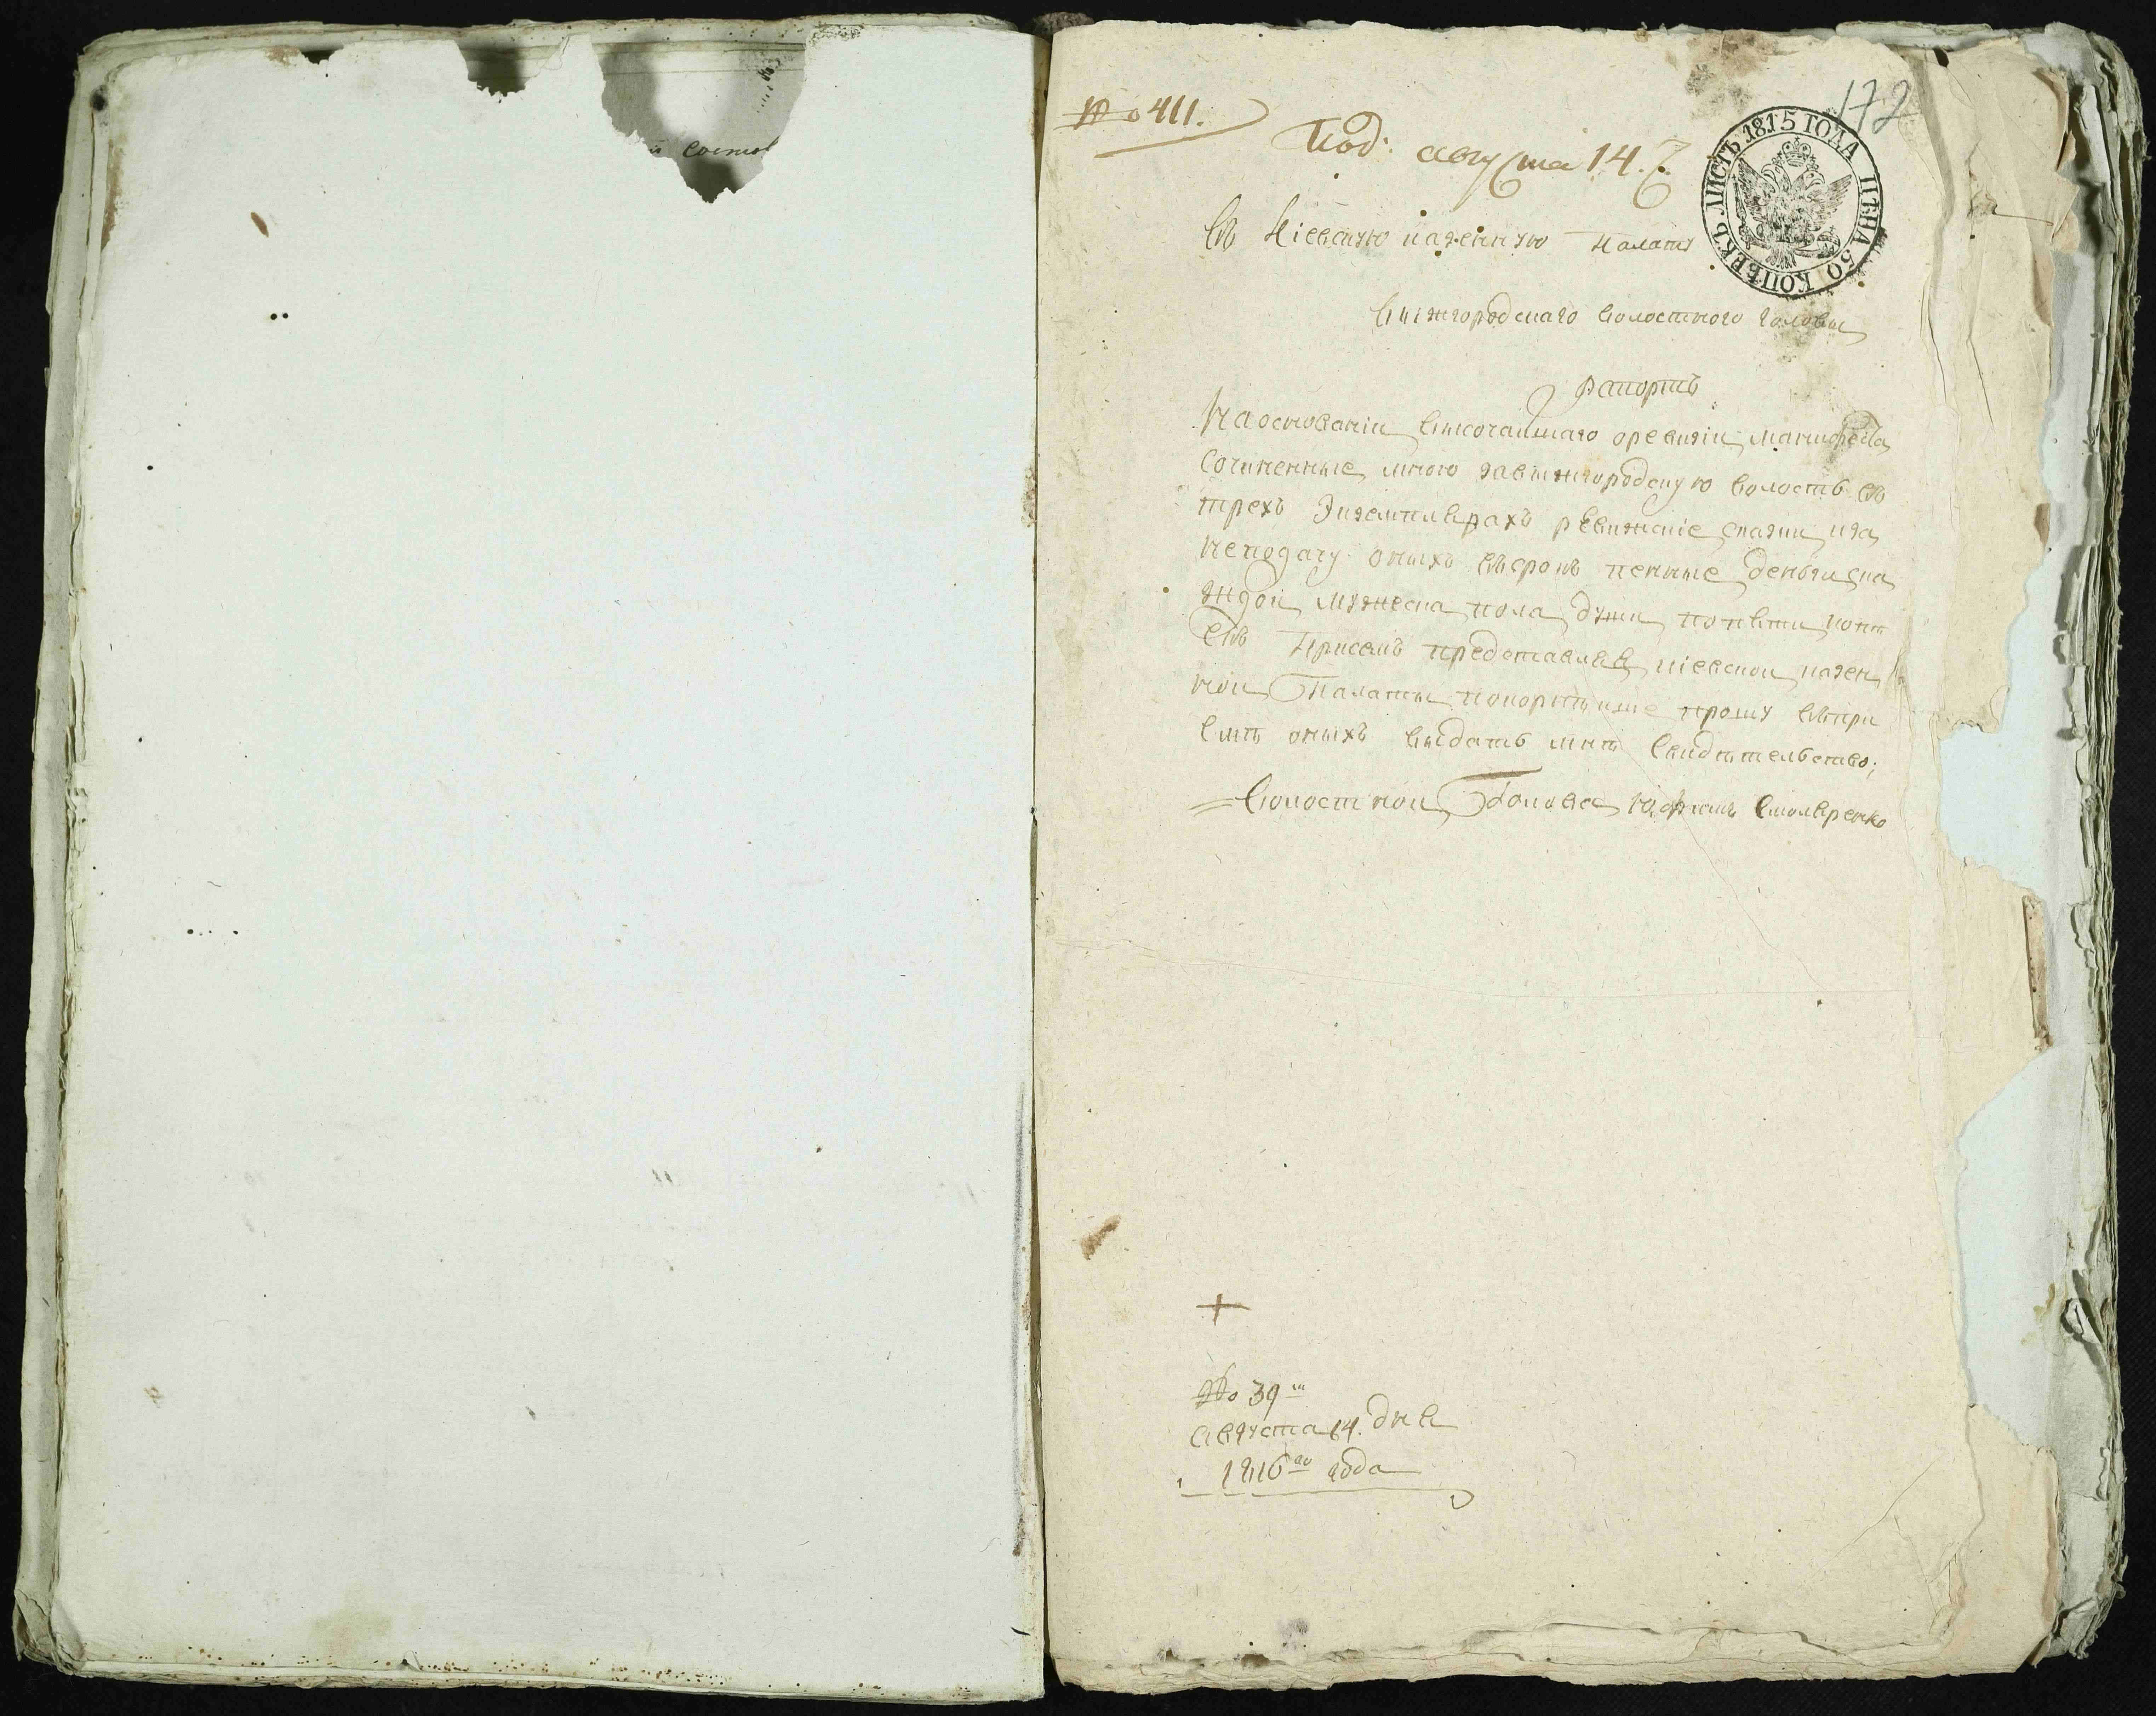 172
№ 411.
Под: августа 14.
ЛИСТЪ 1815 ГОДА ЦѢНА 50 КОПѢЕКЪ
Въ Кіевскую казенную палату
Вышгородскаго волостного головы
Рапортъ
На основаніи высочайшаго оревизіи манифеста
сочиненные мною завышгородскую волость въ
трехъ Экземплярахъ ревижскіе сказки иза
неподачу оныхъ въсрокъ пенные деньги ска
ждои мужеска пола души
При семъ представляя кіевскои казен
нои Палаты покорнѣише прошу впри
емѣ оныхъ выдать мнѣ свидѣтельство;
Волостнои Голова Юфимъ Смоляренко
№ 39
Августа 14. дня
1816го года
состоя